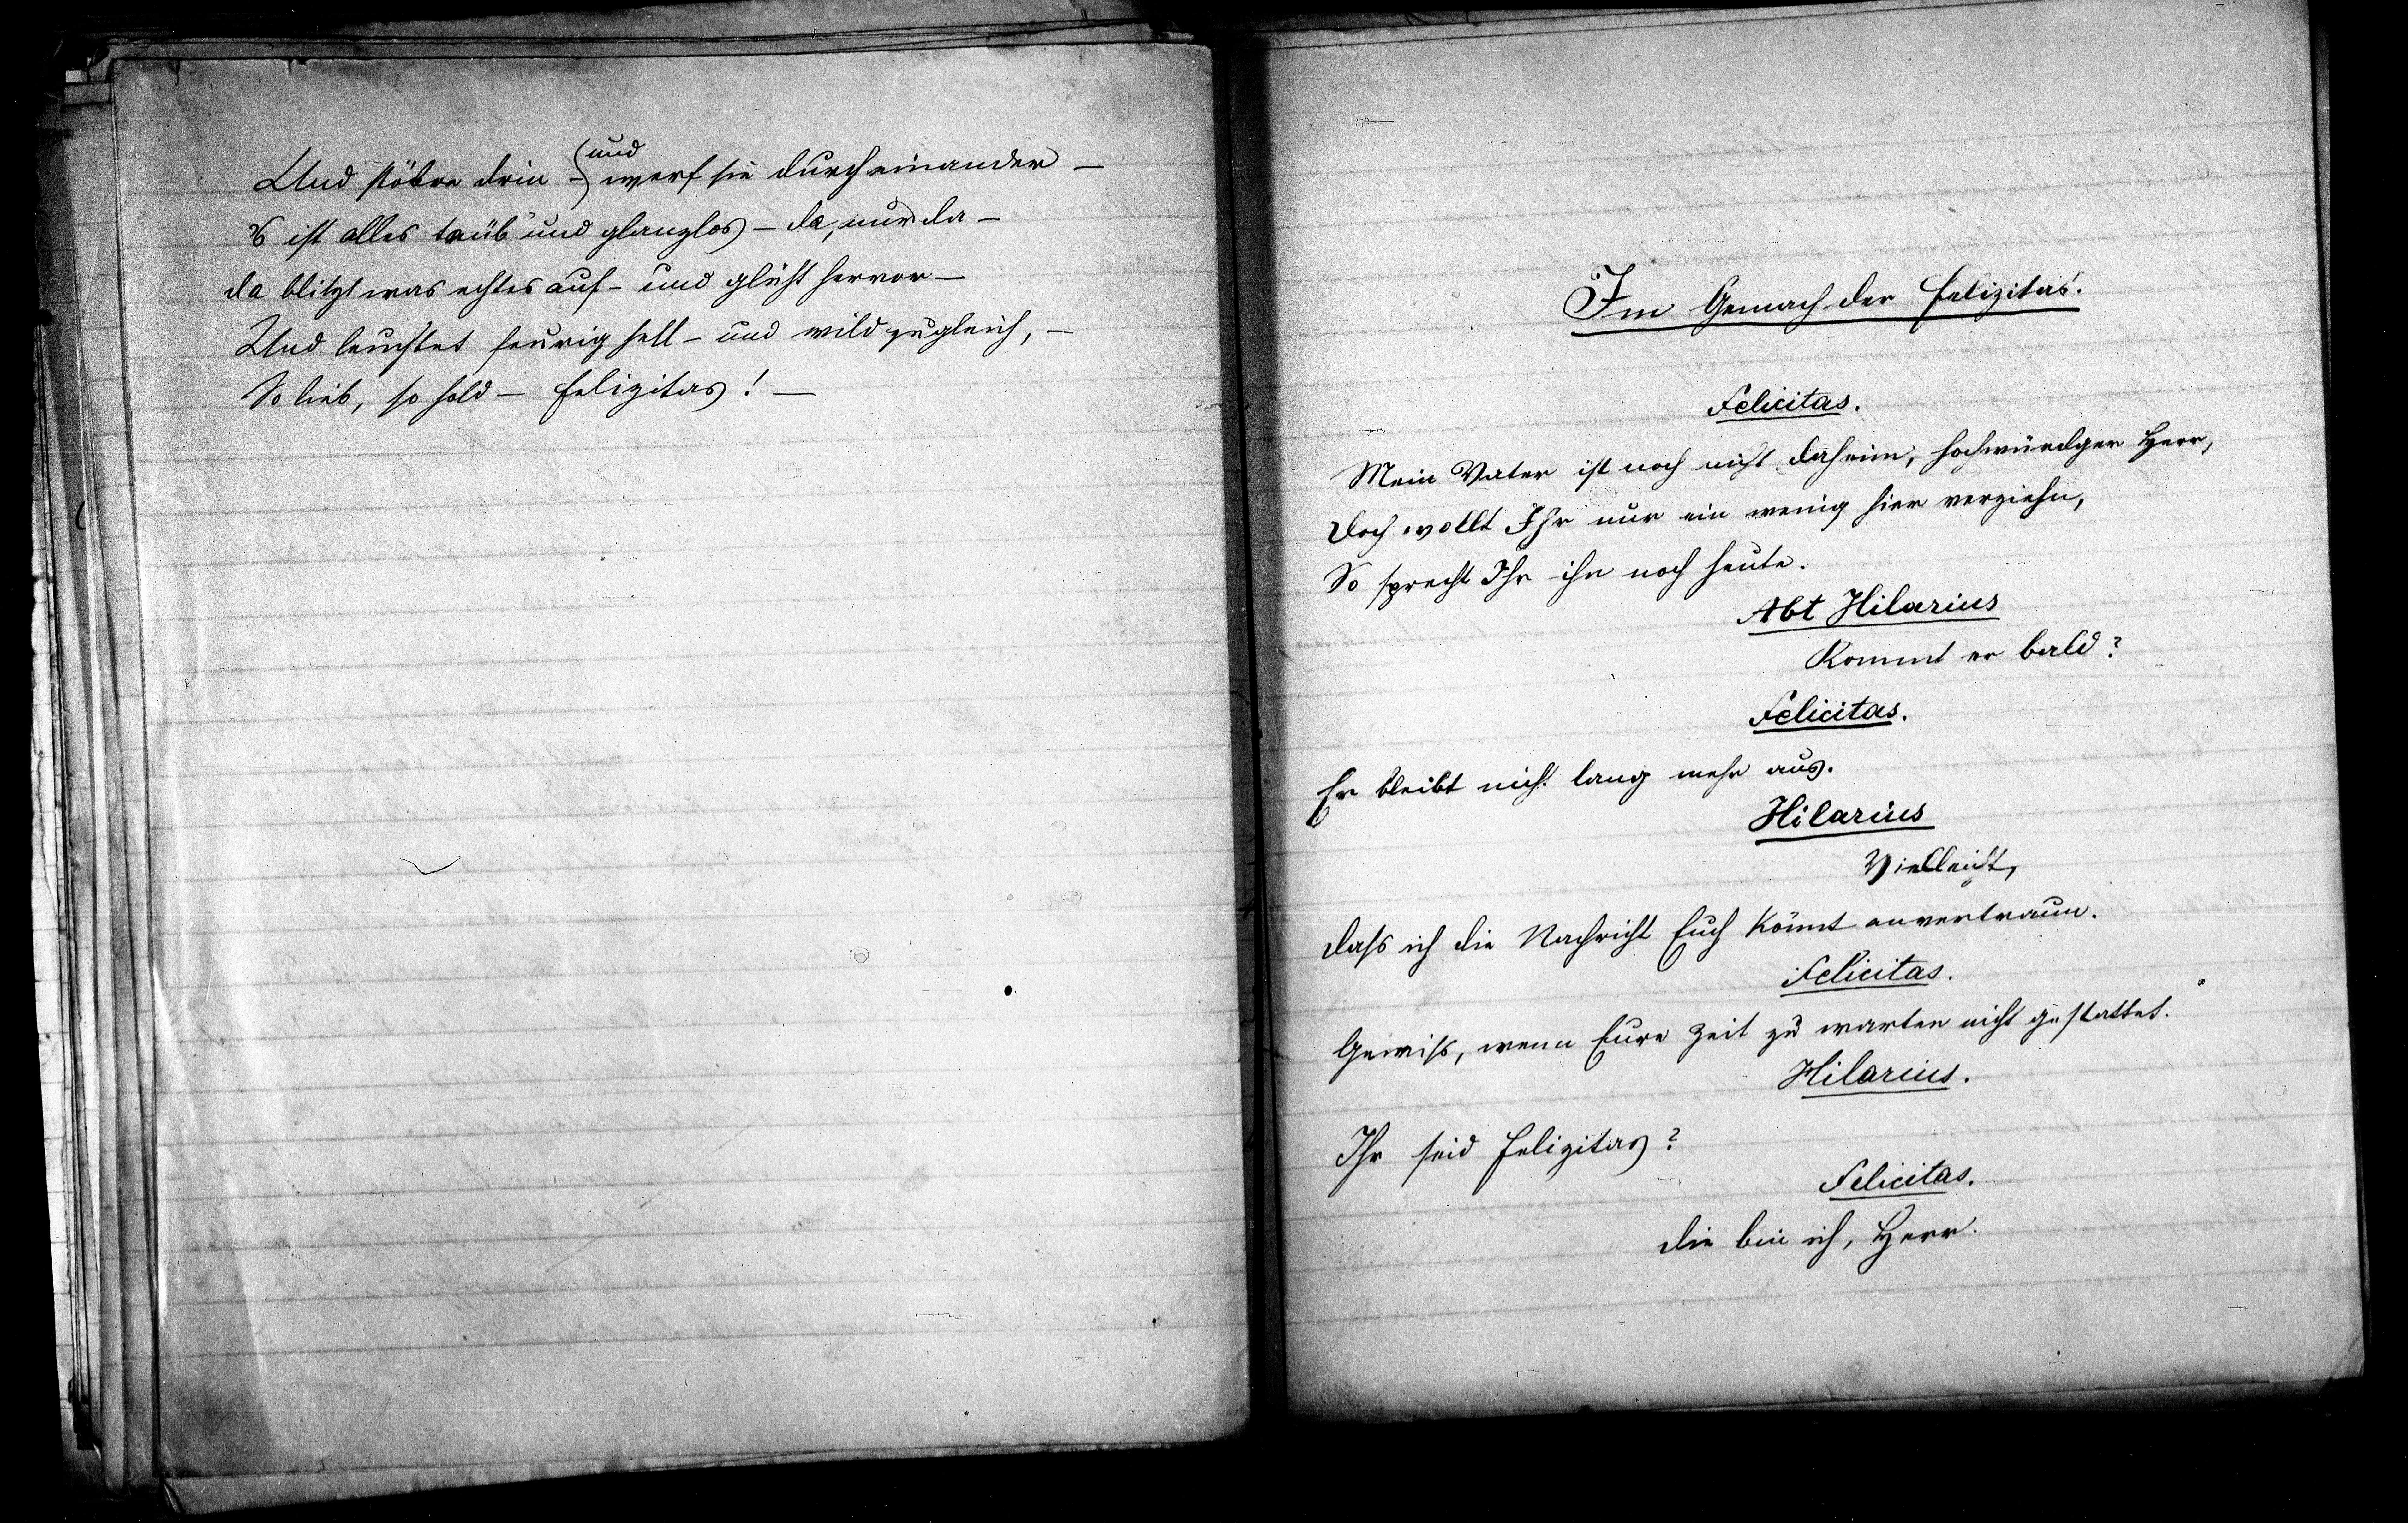 Und stöbre drin – (und) werf sie durcheinander –
's ist alles taub und glanzlos – da, nur da –
da blitzt was echtes auf – und glüht hervor –
Und leuchtet feurig hell – und mild zugleich, –
So lieb, so hold – Felizitas! –
Im Gemach der Felizitas.
Felicitas.
Mein Vater ist noch nicht daheim, hochwürdger Herr,
Doch wollt Ihr nur ein wenig hier verziehn,
So sprecht Ihr ihn noch heute.
Abt Hilarius
Kommt er bald?
Felicitas.
Er bleibt nicht lang mehr aus.
Hilarius
Vielleicht,
dass ich die Nachricht Euch könnt anvertraun.
Felicitas.
Gewiss, wenn Eure Zeit zu warten nicht gestattet.
Hilarius.
Ihr seid Felizitas?
Felicitas.
die bin ich, Herr.